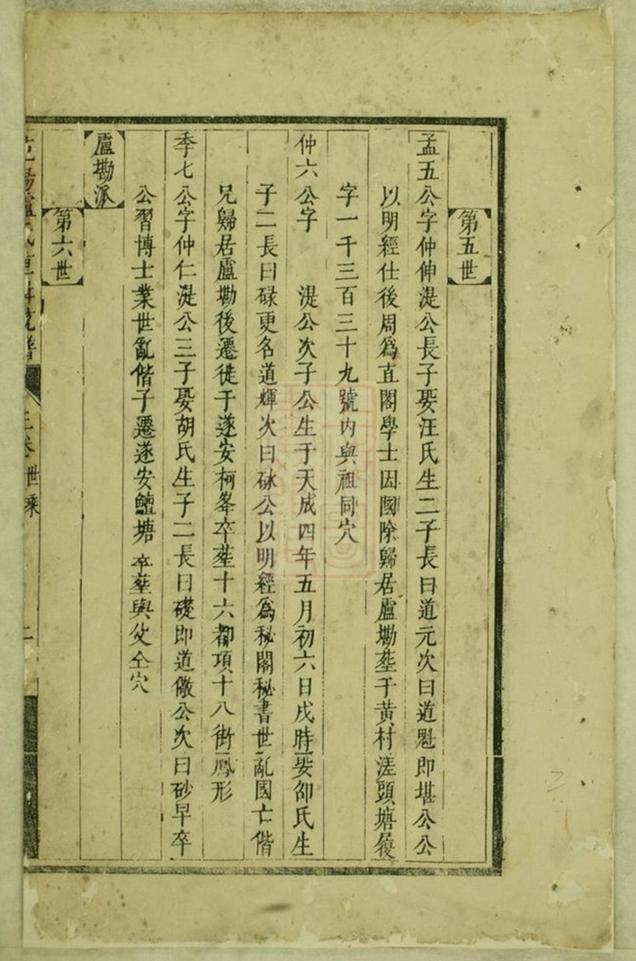 第五世
孟五公字仲伸湜公長子娶汪氏生二子長曰道元次曰道魁即堪公公
以明經仕後周爲直閣學士因國除歸居盧勘塟于黄村滗頭塘履
字一千三百三十九號内與祖同穴
仲六公字 湜公次子公生于天成四年五月初六日戌時娶邵氏生
子二長曰碌更名道輝次曰砅公以明經爲秘閣秘書世亂國亡偕
兄歸居盧勘後遷徙于遂安柯峯卒塟十六都項十八街鳳形
季七公字仲仁湜公三子娶胡氏生子二長曰礎即道儆公次曰砂早卒
公習博士業世亂偕子遷遂安鱣塘卒塟與父仝穴
盧勘派
第六世
三卷 世系
二